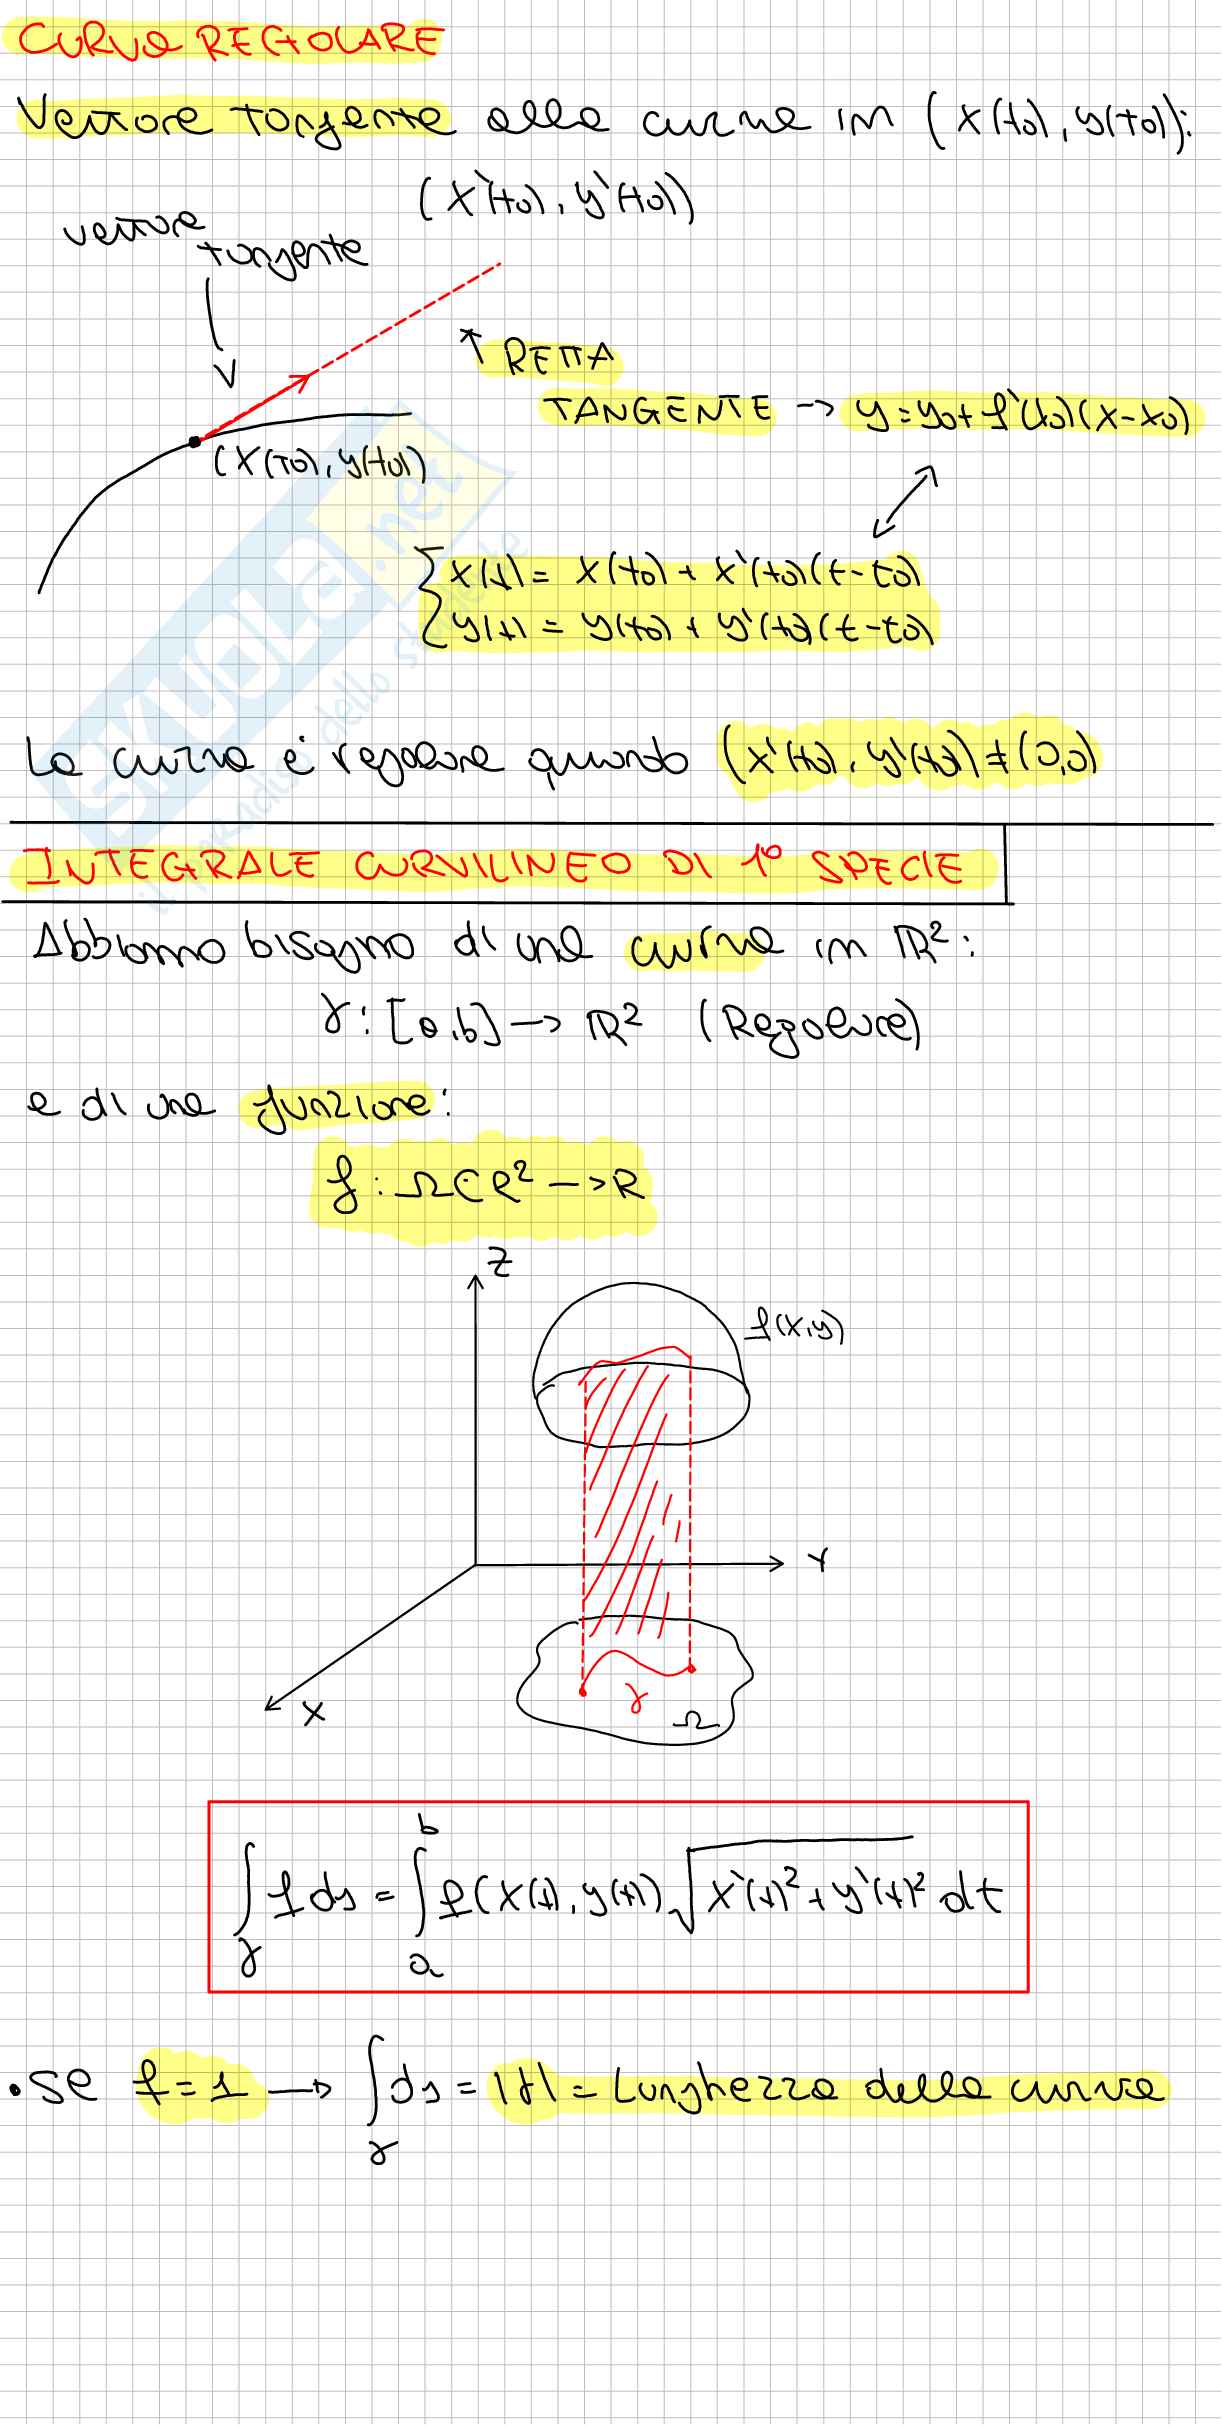 CURVA REGOLARE
Vettore tangente alla curva in (x(t0), y(t0)):
(x'(t0), y'(t0))
vettore
tangente
↑ RETTA
TANGENTE → y = y0 + f'(t0)(x-x0)
(x(t0), y(t0))
{x(t) = x(t0) + x'(t0)(t-t0)
y(t) = y(t0) + y'(t0)(t-t0)
SKUOLA.net
il paradiso dello studente
La curva è regolare quando (x'(t0), y'(t0)) ≠ (0,0)
INTEGRALE CURVILINEO DI 1° SPECIE
Abbiamo bisogno di una curva in ℝ²:
γ: [a,b] → ℝ² (Regolare)
e di una funzione:
f: Ω⊂R² → R
Z
f(x,y)
Y
X
γ
Ω
∫γ f ds = ∫ₐᵇ f(x(t), y(t)) √x'(t)² + y'(t)² dt
• se f = 1 → ∫γ ds = |γ| = Lunghezza della curva